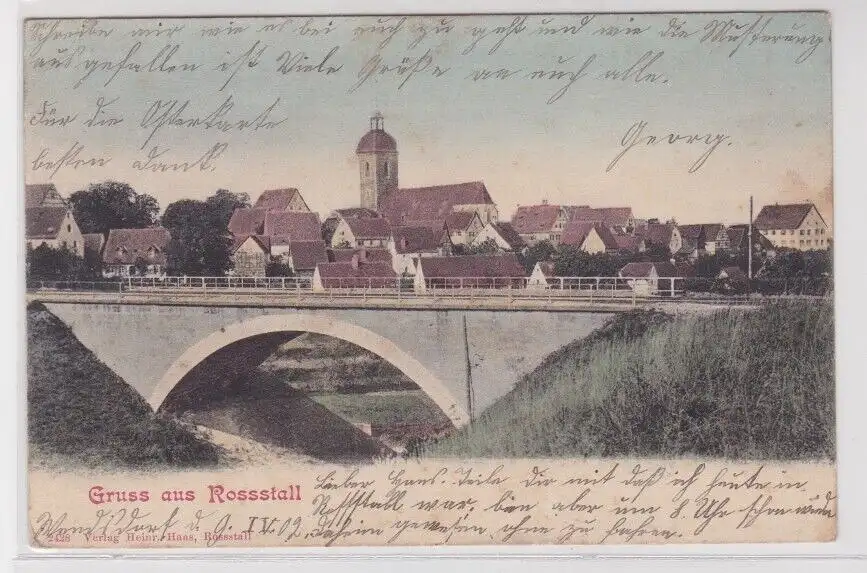 Schreibe mir wie es bei euch zu geht und wie die Musterung
ausgefallen ist Viele Grüße an euch alle.
Für die Osterkarte
besten Dank.
Georg.
Gruss aus Rossstall
Lieber Hans. Teile Dir mit daß ich heute in
Roßstall war, bin aber um 8 Uhr schon wieder
daheim gewesen ohne zu fahren.
Wendsdorf d. 9. IV. 09.
2428 Verlag Heinr. Haas, Rossstall